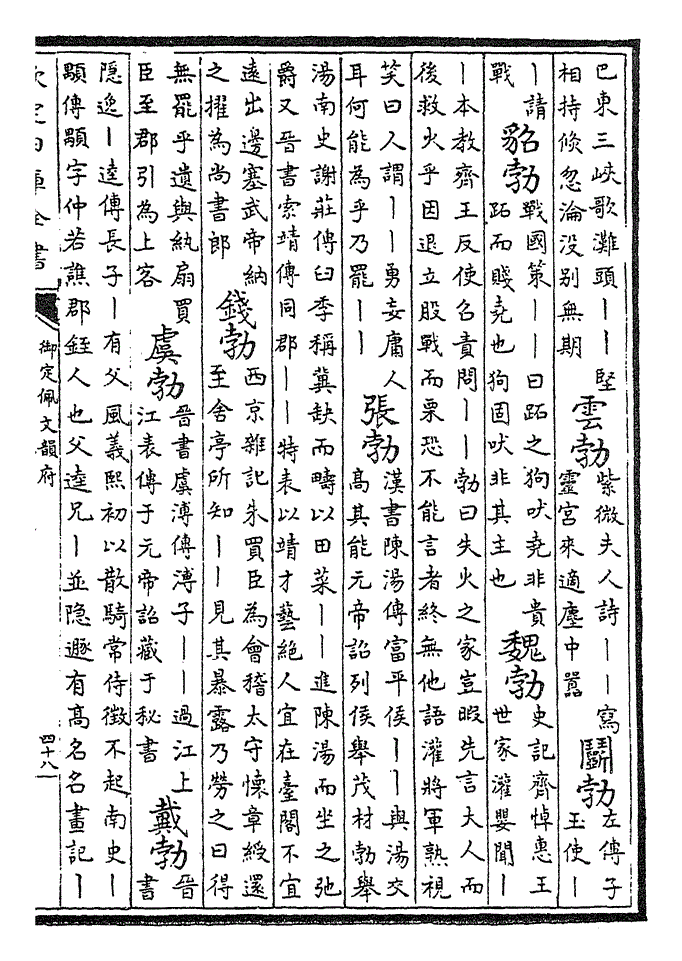 巴東三峽歌灘頭丨丨堅
相持倐忽淪没别無期
雲勃
紫微夫人詩丨丨寫
靈宮來適塵中嚣
鬭勃
左傳子
玉使丨
丨請
戰
貂勃
戰國策丨丨曰跖之狗吠堯非貴
跖而賤堯也狗固吠非其主也
魏勃
史記齊悼惠王
世家灌嬰聞丨
丨本教齊王反使召責問丨丨勃曰失火之家豈暇先言大人而
後救火乎因退立股戰而栗恐不能言者終無他語灌將軍熟視
笑曰人謂丨丨勇妄庸人
耳何能為乎乃罷丨丨
張勃
漢書陳湯傳富平侯丨丨與湯交
髙其能元帝詔列侯舉茂材勃舉
湯南史謝莊傳臼季稱冀缺而疇以田菜丨丨進陳湯而坐之弛
爵又晉書索靖傳同郡丨丨特表以靖才藝絶人宜在臺閣不宜
逺出邊塞武帝納
之擢為尚書郎
錢勃
西京雜記朱買臣為會稽太守懐章綬還
至舍亭所知丨丨見其暴露乃勞之曰得
無罷乎遺與紈扇買
臣至郡引為上客
虞勃
晉書虞溥傳溥子丨丨過江上
江表傳于元帝詔藏于秘書
戴勃
晉
書
隱逸丨逵傳長子丨有父風義熙初以散騎常侍徴不起南史丨
顒傳顒字仲若譙郡銍人也父逵兄丨並隐遯有髙名名畫記丨
欽定四庫全書
御定佩文韻府
四十八